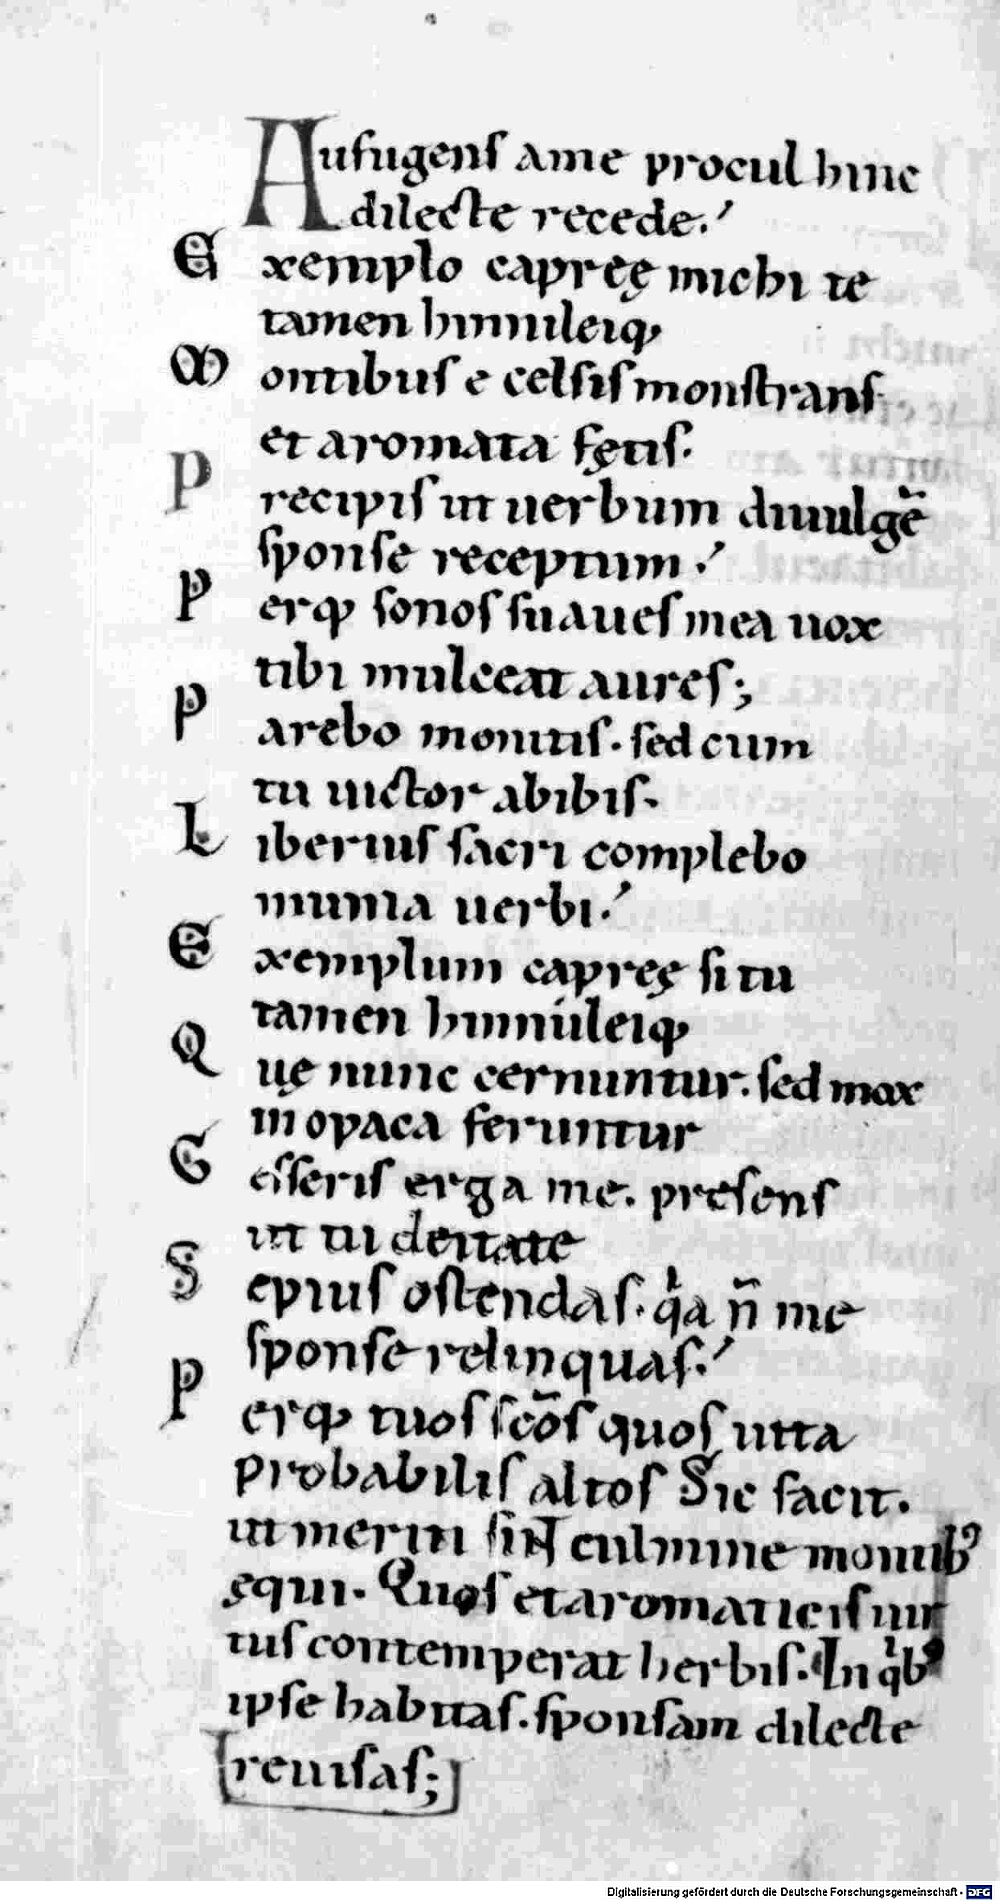 Aufugens ame procul hinc
dilecte recede.
Exemplo capreę michi te
tamen hinnuleiq;
Montibus e celsis monstrans
et aromata fętis.
Precipis ut uerbum diuulgē
sponse receptum.
Perq; sonos suaues mea uox
tibi mulceat aures;
Parebo monitis. sed cum
tu uictor abibis.
Liberius sacri complebo
munia uerbi.
Exemplum capreę si tu
tamen hinnuleiq;
Quę nunc cernuntur. sed mox
in opaca feruntur
Gesseris erga me. presens
ut tu deitate
Sepius ostendas. qa n̄ me
sponse relinquas.
Perq; tuos scōs quos uita
probabilis altos Sic facit.
ut meriti sint culmine montib;
ęqui. Quos et aromaticis uir
tus contemperat herbis. In qb;
ipse habitas. sponsam dilecte
reuisas;
Digitalisierung gefördert durch die Deutsche Forschungsgemeinschaft - DFG